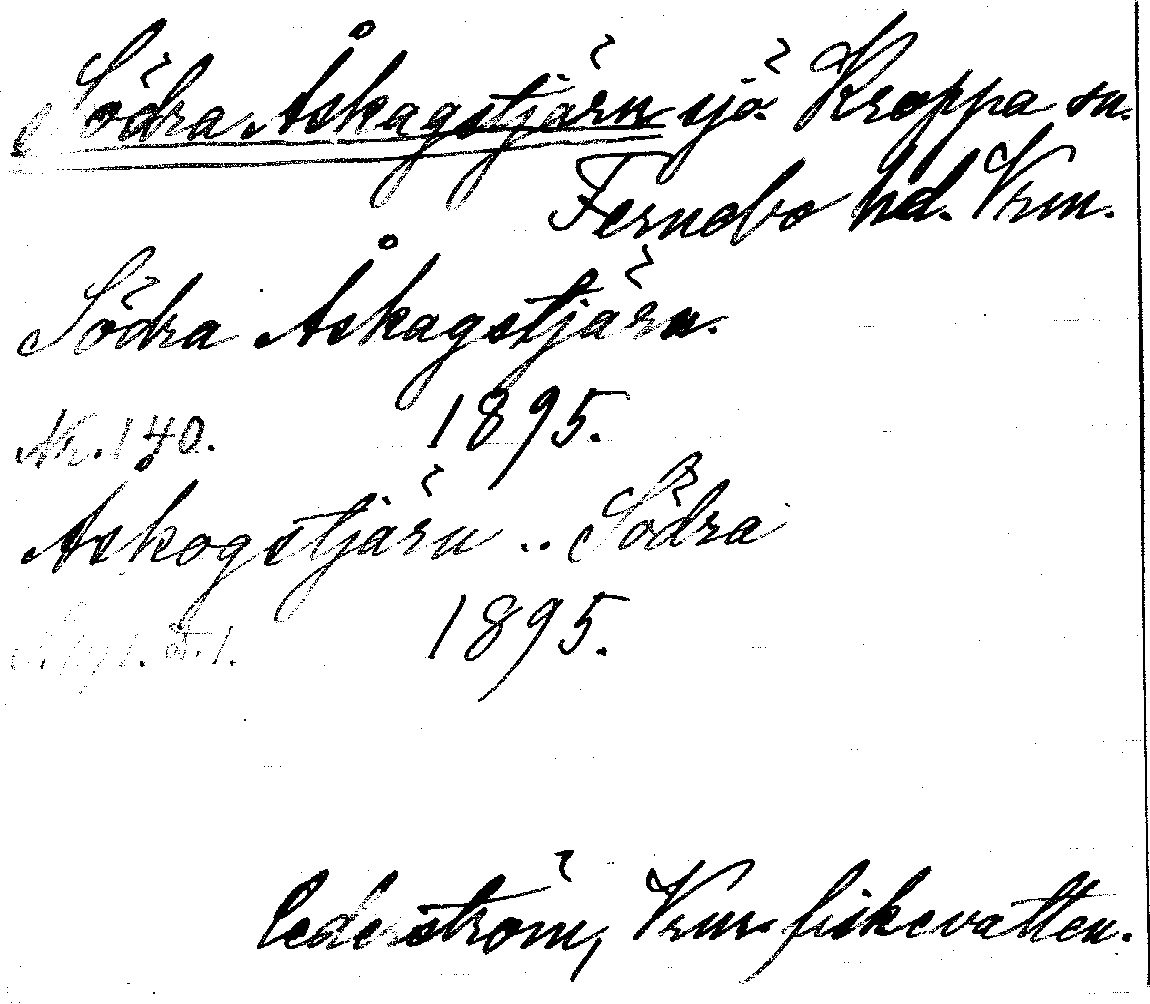 Södra Åskagstjärn sjö. Kroppa sn.
Fernebo hd. Vrm.
Södra Åskagstjärn.
Nr. 140. 1895.
Åskogstjärn .. Södra
1895.
Cederström, Vrm. fiskevatten.